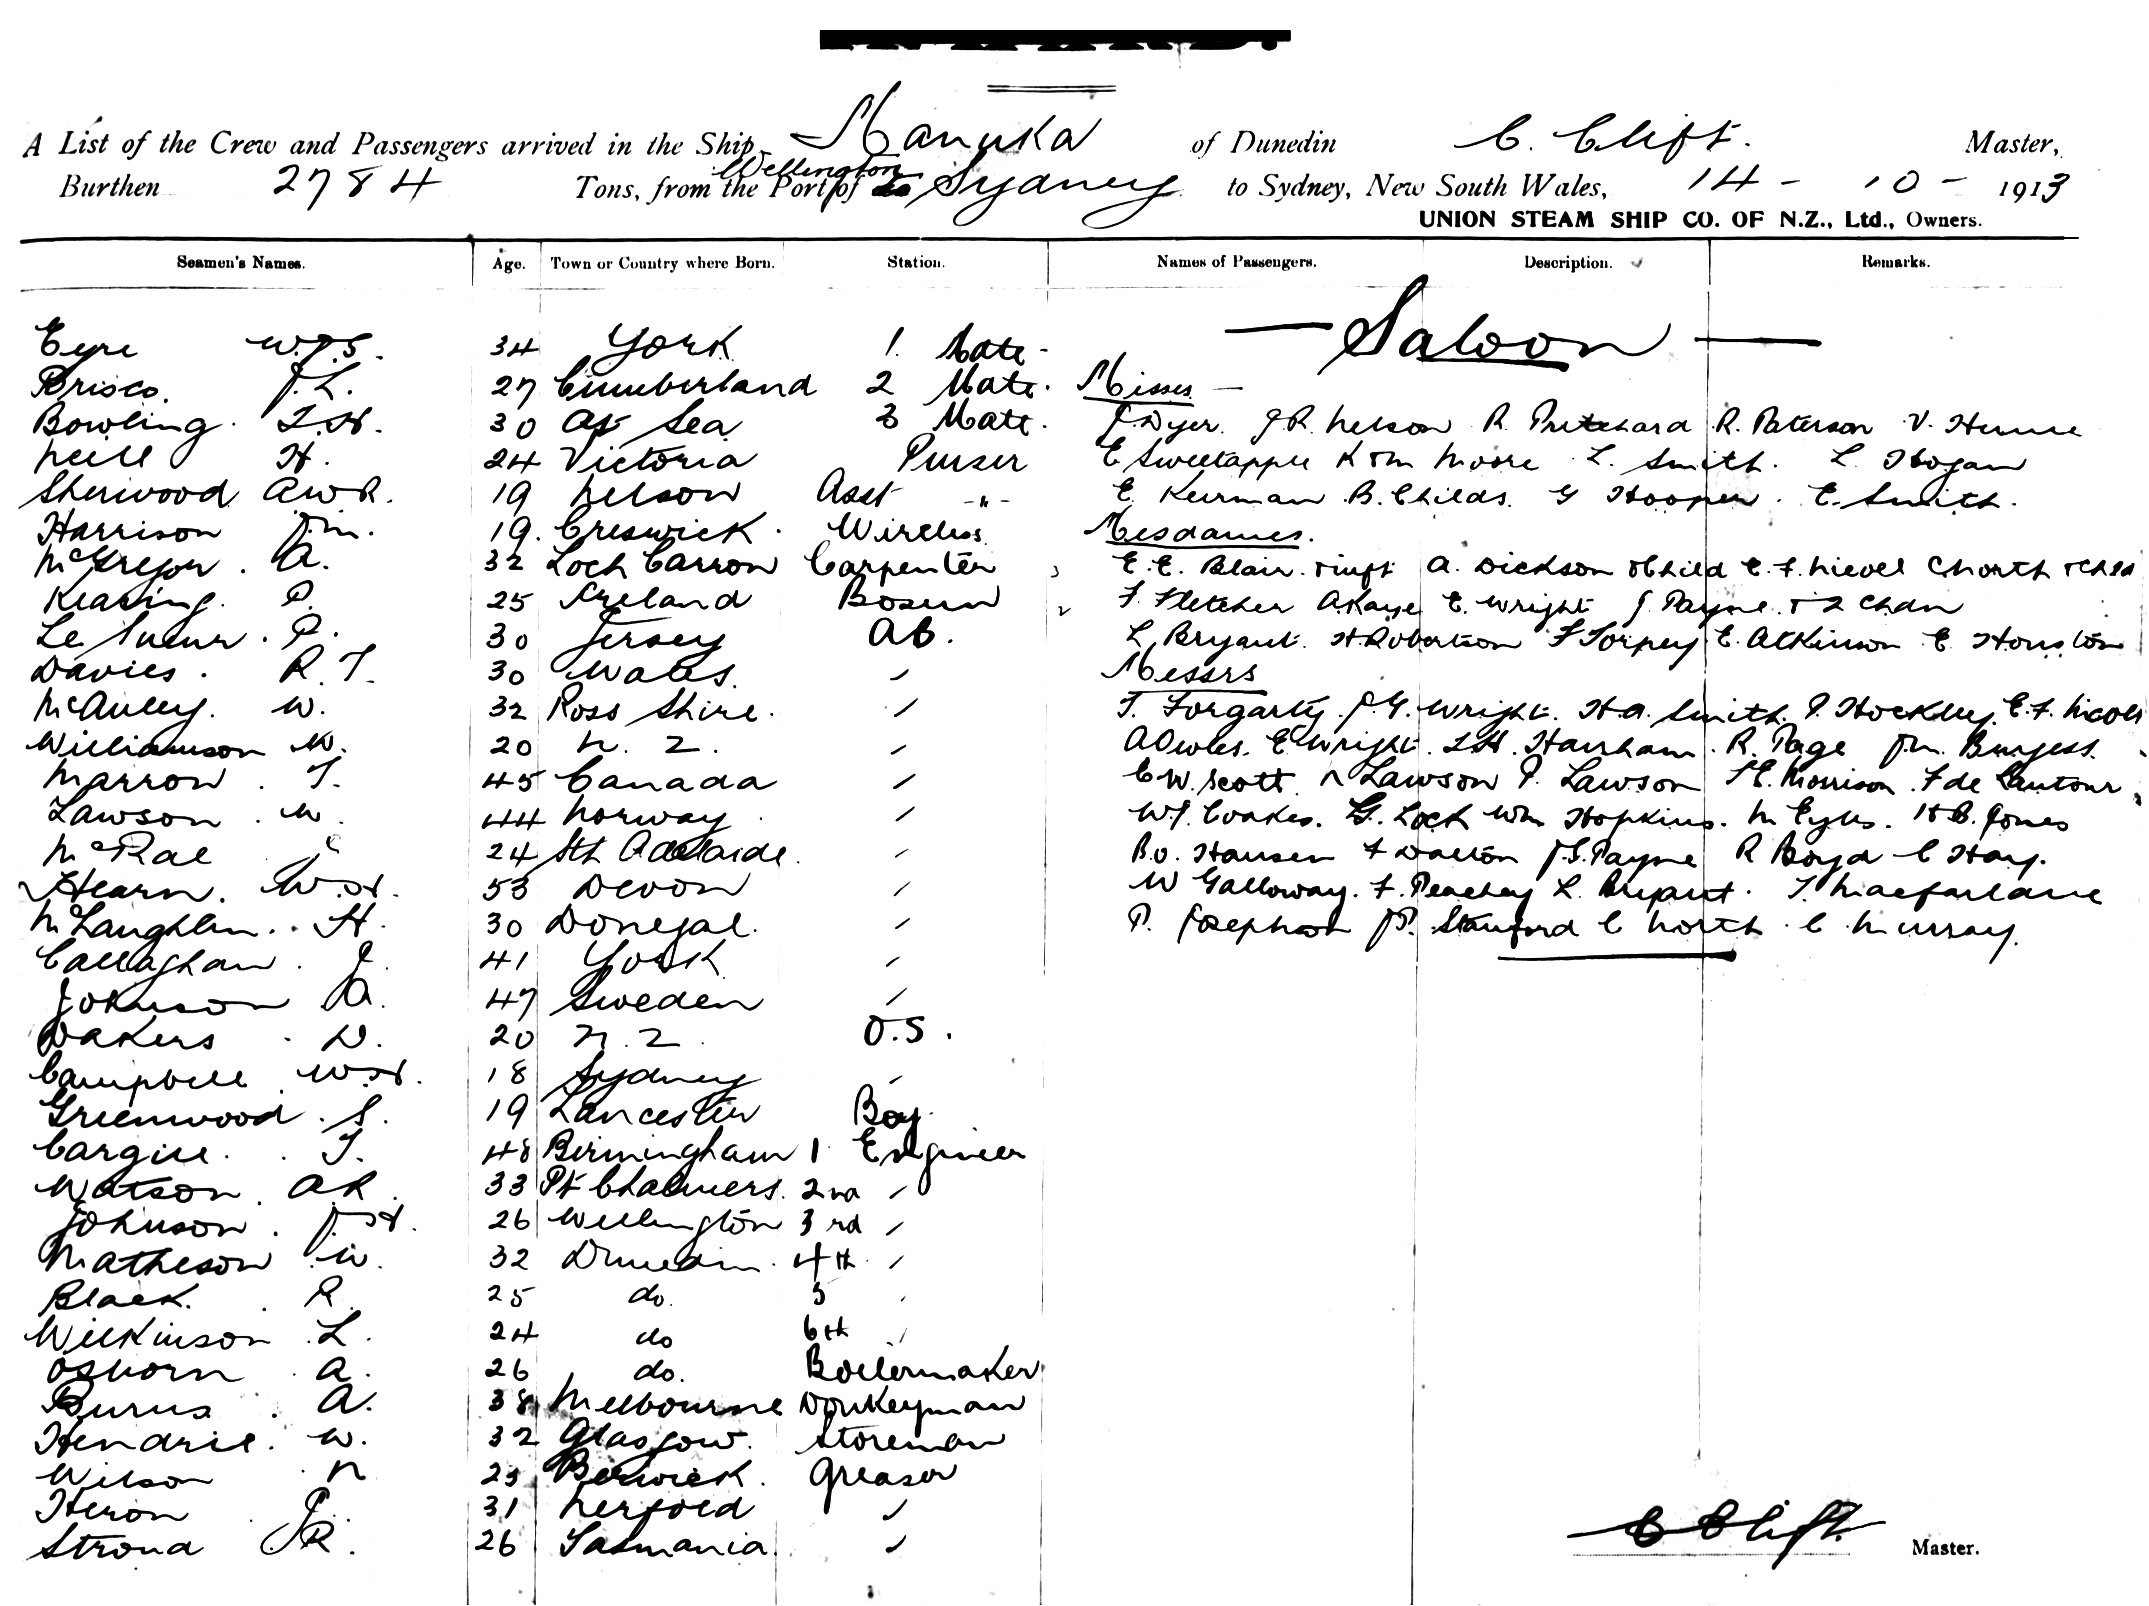 A List of the Crew and Passengers arrived in the Ship Manuka of Dunedin C. Clift. Master,
Burthen 2784 Tons, from the Port of Wellington Sydney to Sydney, New South Wales, 14 - 10 - 1913
UNION STEAM SHIP CO. OF N.Z., Ltd., Owners.
Seamen's Names. Age. Town or Country where Born. Station. Names of Passengers. Description. Remarks.
— Saloon —
Eyre 34 York 1. Mate -
Brisco. J.L. 27 Cumberland 2 Mate.
Bowling. 30 At Sea 3 Mate.
Neill H. 24 Victoria Purser
Sherwood A.W.R. 19 Nelson Asst -"-
Harrison J.M. 19. Creswick. Wireless
McGregor. A. 32 Loch Carron Carpenter
Kearing. P. 25 Ireland Bosun
Le Sueur. P. 30 Jersey AB.
Davies. R.T. 30 Wales. "
McAuley. W. 32 Ross Shire. "
Williamson W. 20 N.Z. "
Marron. T. 45 Canada "
Lawson. W. 44 Norway "
McRae 24 Sth Adelaide. "
Hearn. W.H. 53 Devon "
McLaughlin. H. 30 Donegal. "
Callaghan. J. 41 York "
Johnson A. 47 Sweden "
Dakers. D. 20 N.Z. O.S.
Campbell W.H. 18 Sydney "
Greenwood. S. 19 Lancester Boy.
Cargill. T. 48 Birmingham 1 Engineer
Watson. A.R. 33 Pt Chalmers. 2nd "
Johnson. J.H. 26 Wellington 3rd "
Matheson W. 32 Dunedin. 4th "
Black. R. 25 do. 5 "
Wilkinson. L. 24 do 6th "
Osborn A. 26 do. Boilermaker
Burns. A. 38 Melbourne Donkeyman
Hendrie. W. 32 Glasgow. Storeman
Wilson N 25 Berwick. Greaser
Heron J. 31 "
Stroud J R. 26 Tasmania. "
Misses —
J. Dyer. J R. Nelson R. Pritchard R. Paterson V. Hume
E Sweetapple K & M Moore L. Smith. L. Hogan
E. Keirnan B. Childs. G Hooper. E. Smith.
Mesdames.
E.E. Blair. & inft A. Dickson & Child E.F. Nicoll C North & Chld
F. Fletcher A Kaye E. Wright J. Payne. & 2 Chdn
L. Bryant. H. Robertson F Torpey E. Atkinson E. Houston
Messrs
T. Forgarty. J.G. Wright. H.A. Smith. P. Hockley. E.F. Nicoll
A Owles. E Wright. R. Page J.M. Burgess.
C W. Scott. N Lawson P. Lawson Morrison. F de Lautour
W.J. Coakes. G. Lock Wm Hopkins. M Eyles. H B. Jones
B.O. Hansen F Dalton J.S. Payne R Boyd C Hay.
W Galloway. F. Peachey L. Bryant. T. Macfarlane
P. Josephson J.P. Stanford C North. C Murray.
C Clift. Master.